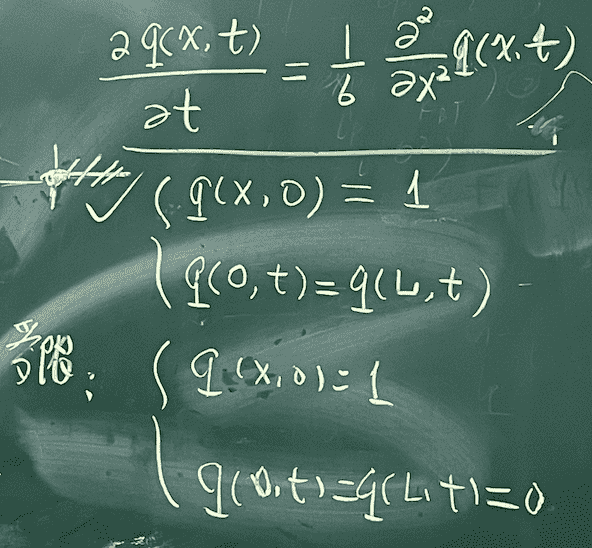 ∂q(x,t)/∂t = 1/6 ∂²/∂x² q(x,t)
{ q(x,0) = 1
q(0,t)=q(L,t)
: { q(x,0)=1
q(0,t)=q(L,t)=0